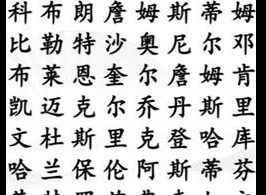 科布朗詹姆斯蒂姆
比勒特沙奥尼尔邓
布莱恩奎尔詹姆肯
凯迈克尔乔丹斯里
文杜斯里克登哈库
哈兰保伦阿斯蒂芬